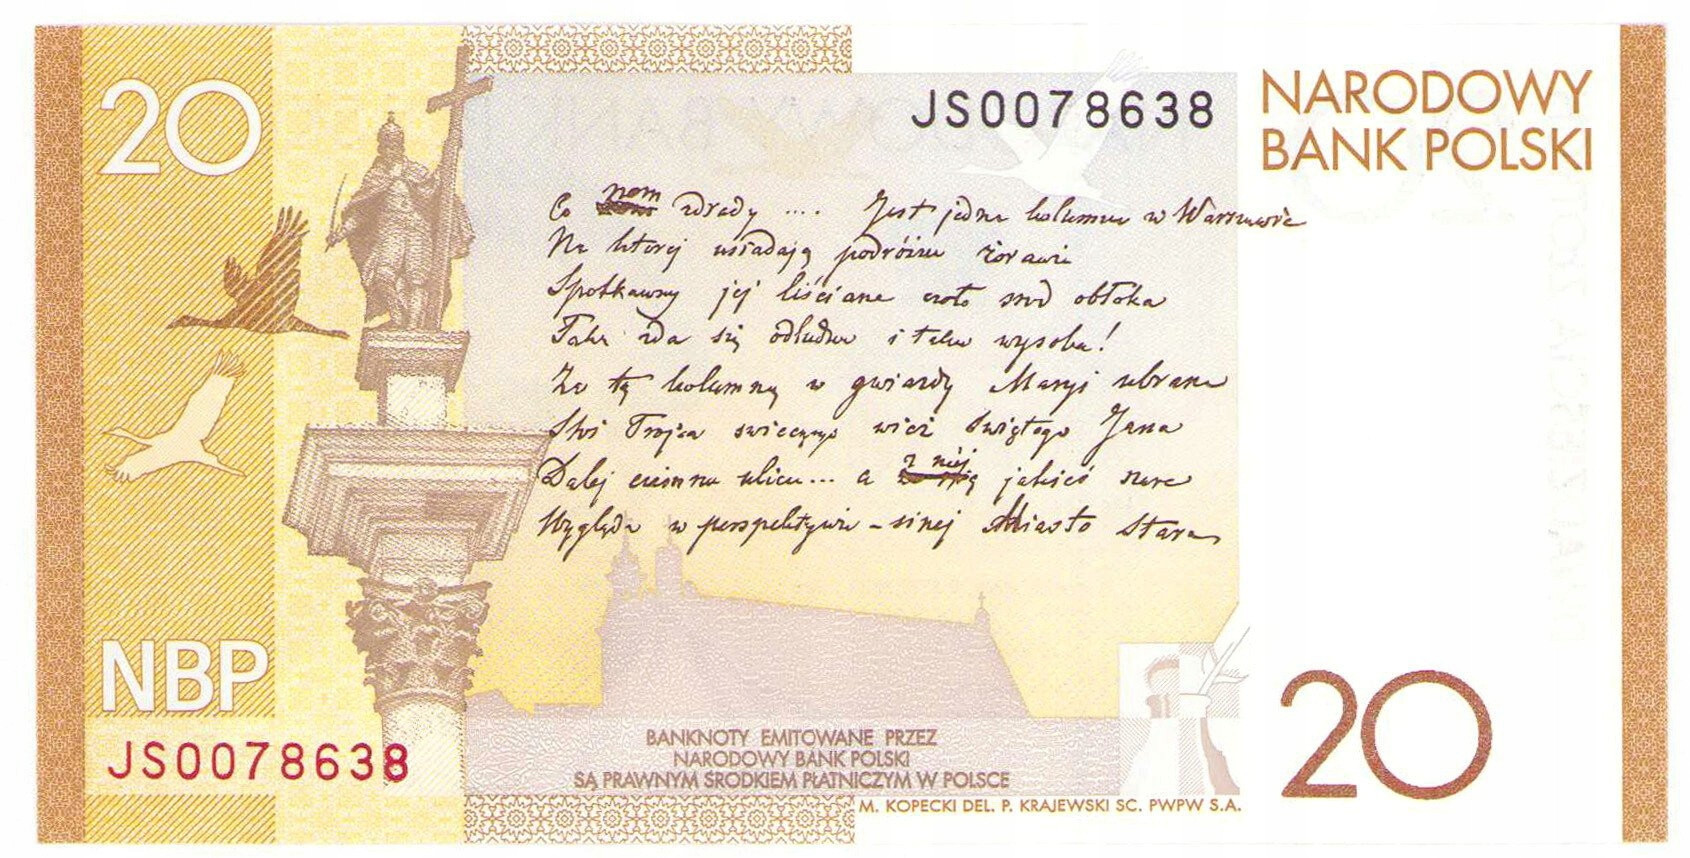 20
JS0078638
NARODOWY
BANK POLSKI
Co nam zdrady .... Jest jedna kolumna w Warszawie
Na ktorej usiadają podróżne żorawie
Spotkawszy jej liściane czoło środ obłoka
Taka zda się odludna i taka wysoka!
Za tą kolumną w gwiazdy Maryi ubrana
Stoi Trojca swiecących wież Świętego Jana
Dalej ciemna ulica... a z niej jakieś szare
Wygląda w perspektywie – sinej Miasto Stare
NBP
JS0078638
BANKNOTY EMITOWANE PRZEZ
NARODOWY BANK POLSKI
SĄ PRAWNYM ŚRODKIEM PŁATNICZYM W POLSCE
M. KOPECKI DEL. P. KRAJEWSKI SC. PWPW S.A.
20